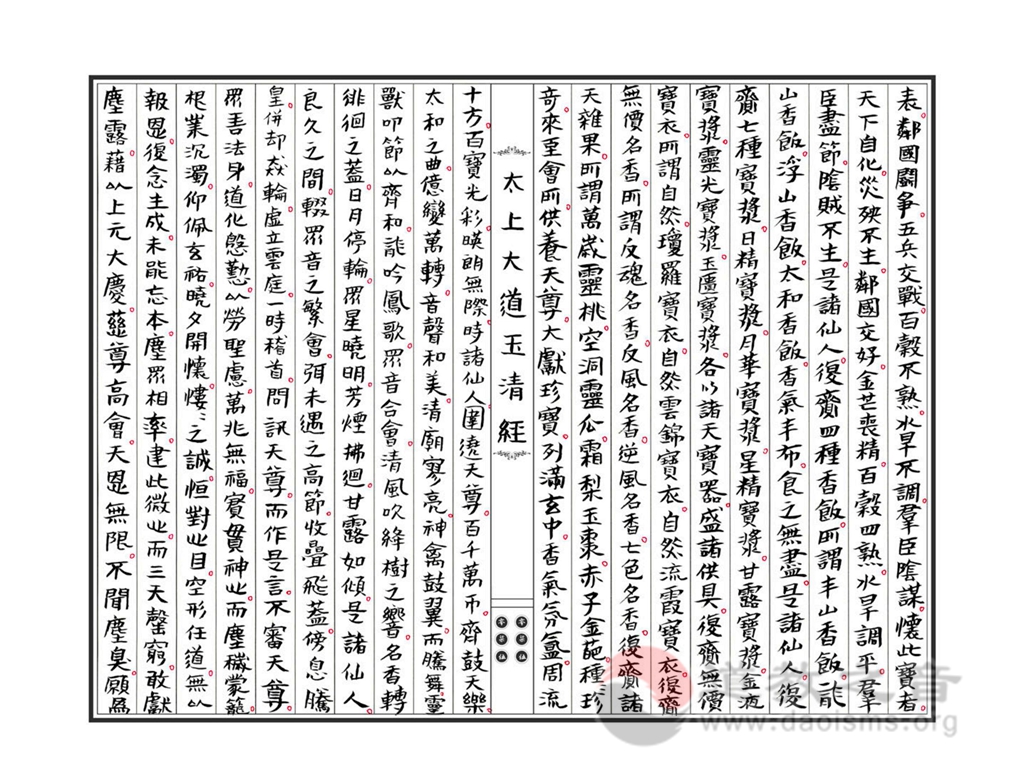 表鄰國鬪爭五兵交戰百穀不熟水旱不調羣臣陰謀懷此寶者
天下自化災殃不生鄰國交好金芒喪精百穀四熟水旱調平羣
臣盡節陰賊不生是諸仙人復齎四種香飯所謂丰山香飯能
山香飯浮山香飯太和香飯香氣丰布食之無盡是諸仙人復
齎七種寶漿日精寶漿月華寶漿星精寶漿甘露寶漿金液
寶漿靈光寶漿玉匱寶漿各以諸天寶器盛諸供具復齎無價
寶衣所謂自然瓊羅寶衣自然雲錦寶衣自然流霞寶衣復齎
無價名香所謂反魂名香反風名香逆風名香七色名香復齎諸
天雜果所謂萬歲靈桃空洞靈瓜霜梨玉棗赤子金葩種種珍
奇來至會所供養天尊大獻珍寶列滿玄中香氣氛氳周流
太上大道玉清經
十方百寶光彩暎朗無際時諸仙人圍遶天尊百千萬帀齊鼓天樂
太和之曲億變萬轉音聲和美清廟寥亮神禽鼓翼而騰舞靈
獸叩節以齊和能吟鳳歌眾音合會清風吹絳樹之響名香轉
徘徊之蓋日月停輪眾星曉明芳煙拂迴甘露如傾是諸仙人
良久之間輟眾音之繁會弭未遇之高節收疊飛蓋傍息騰
皇併却焱輪虛立雲庭一時稽首問訊天尊而作是言不審天尊
眾善法身道化慇懃以勞聖慮萬兆無福賓貫神心而塵穢蒙籠
根業沉濁仰佩玄祐曉夕開懷慺慺之誠恒對心目空形任道無以
報恩復念生成未能忘本塵眾相率建此微心而三天罄窮敢獻
塵露藉以上元大慶慈尊高會天恩無限不聞塵臭願為
道教之音
www.daoisms.org